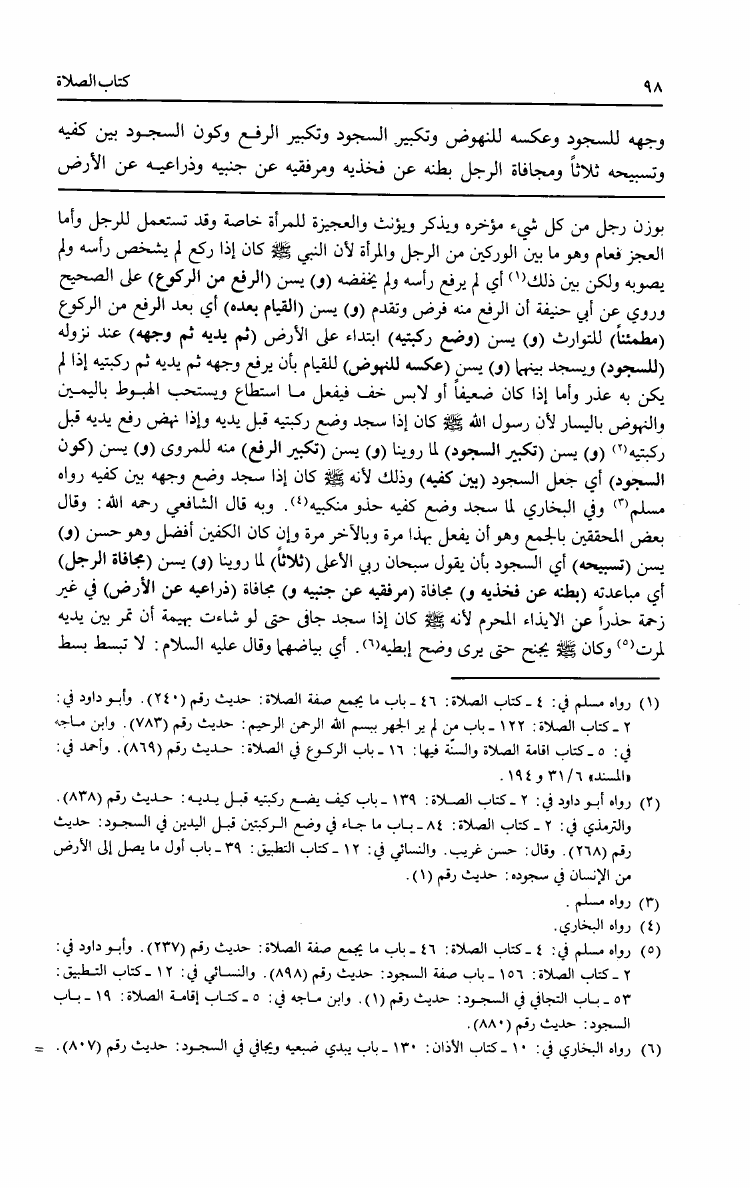 ٩٨
كتاب الصلاة
وجهه للسجود وعكسه للنهوض وتكبير السجود وتكبير الرفع وكون السجود بين كفيه
وتسبيحه ثلاثاً ومجافاة الرجل بطنه عن فخذيه ومرفقيه عن جنبيه وذراعيه عن الأرض
بوزن رجل من كل شيء مؤخره ويذكر ويؤنث والعجيزة للمرأة خاصة وقد تستعمل للرجل وأما
العجز فعام وهو ما بين الوركين من الرجل والمرأة لأن النبي ﷺ كان إذا ركع لم يشخص رأسه ولم
يصوبه ولكن بين ذلك(١) أي لم يرفع رأسه ولم يخفضه (و) يسن (الرفع من الركوع) على الصحيح
وروي عن أبي حنيفة أن الرفع منه فرض وتقدم (و) يسن (القيام بعده) أي بعد الرفع من الركوع
(مطمئناً) للتوارث (و) يسن (وضع ركبتيه) ابتداء على الأرض (ثم يديه ثم وجهه) عند نزوله
(للسجود) ويسجد بينهما (و) يسن (عكسه للنهوض) للقيام بأن يرفع وجهه ثم يديه ثم ركبتيه إذا لم
يكن به عذر وأما إذا كان ضعيفاً أو لابس خف فيفعل ما استطاع ويستحب الهبوط باليمين
والنهوض باليسار لأن رسول الله ﷺ كان إذا سجد وضع ركبتيه قبل يديه وإذا نهض رفع يديه قبل
ركبتيه(٢) (و) يسن (تكبير السجود) لما روينا (و) يسن (تكبير الرفع) منه للمروى (و) يسن (كون
السجود) أي جعل السجود (بين كفيه) وذلك لأنه ﷺ كان إذا سجد وضع وجهه بين كفيه رواه
مسلم(٣) وفي البخاري لما سجد وضع كفيه حذو منكبيه(٤). وبه قال الشافعي رحمه الله: وقال
بعض المحققين بالجمع وهو أن يفعل بهذا مرة وبالآخر مرة وإن كان الكفين أفضل وهو حسن (و)
يسن (تسبيحه) أي السجود بأن يقول سبحان ربي الأعلى (ثلاثاً) لما روينا (و) يسن (مجافاة الرجل)
أي مباعدته (بطنه عن فخذيه و) مجافاة (مرفقيه عن جنبيه و) مجافاة (ذراعيه عن الأرض) في غير
زحمة حذراً عن الايذاء المحرم لأنه ﷺ كان إذا سجد جافى حتى لو شاءت بهيمة أن تمر بين يديه
لمرت(٥) وكان ﷺ يجنح حتى يرى وضح إبطيه(٦). أي بياضهما وقال عليه السلام: لا تبسط بسط
(١) رواه مسلم في: ٤ ـ كتاب الصلاة: ٤٦ ـ باب ما يجمع صفة الصلاة: حديث رقم (٢٤٠). وأبو داود في:
٢ ـ كتاب الصلاة: ١٢٢ ـ باب من لم ير الجهر ببسم الله الرحمن الرحيم: حديث رقم (٧٨٣). وابن ماجه
في: ٥ ـ كتاب اقامة الصلاة والسنّة فيها: ١٦ ـ باب الركوع في الصلاة: حديث رقم (٨٦٩). وأحمد في:
«المسند» ٣١/٦ و ١٩٤.
(٢) رواه أبو داود في: ٢ ـ كتاب الصلاة: ١٣٩ ـ باب كيف يضع ركبتيه قبل يديه: حديث رقم (٨٣٨).
والترمذي في: ٢ ـ كتاب الصلاة: ٨٤ ـ باب ما جاء في وضع الركبتين قبل اليدين في السجود: حديث
رقم (٢٦٨). وقال: حسن غريب. والنسائي في: ١٢ ـ كتاب التطبيق: ٣٩ ـ باب أول ما يصل إلى الأرض
من الإنسان في سجوده: حديث رقم (١).
(٣) رواه مسلم.
(٤) رواه البخاري.
(٥) رواه مسلم في: ٤ ـ كتاب الصلاة: ٤٦ ـ باب ما يجمع صفة الصلاة: حديث رقم (٢٣٧). وأبو داود في:
٢ ـ كتاب الصلاة: ١٥٦ ـ باب صفة السجود: حديث رقم (٨٩٨). والنسائي في: ١٢ ـ كتاب التطبيق:
٥٣ ـ باب التجافي في السجود: حديث رقم (١). وابن ماجه في: ٥ ـ كتاب إقامة الصلاة: ١٩ ـ باب
السجود: حديث رقم (٨٨٠).
(٦) رواه البخاري في: ١٠ ـ كتاب الأذان: ١٣٠ ـ باب يبدي ضبعيه ويجافي في السجود: حديث رقم (٨٠٧). =